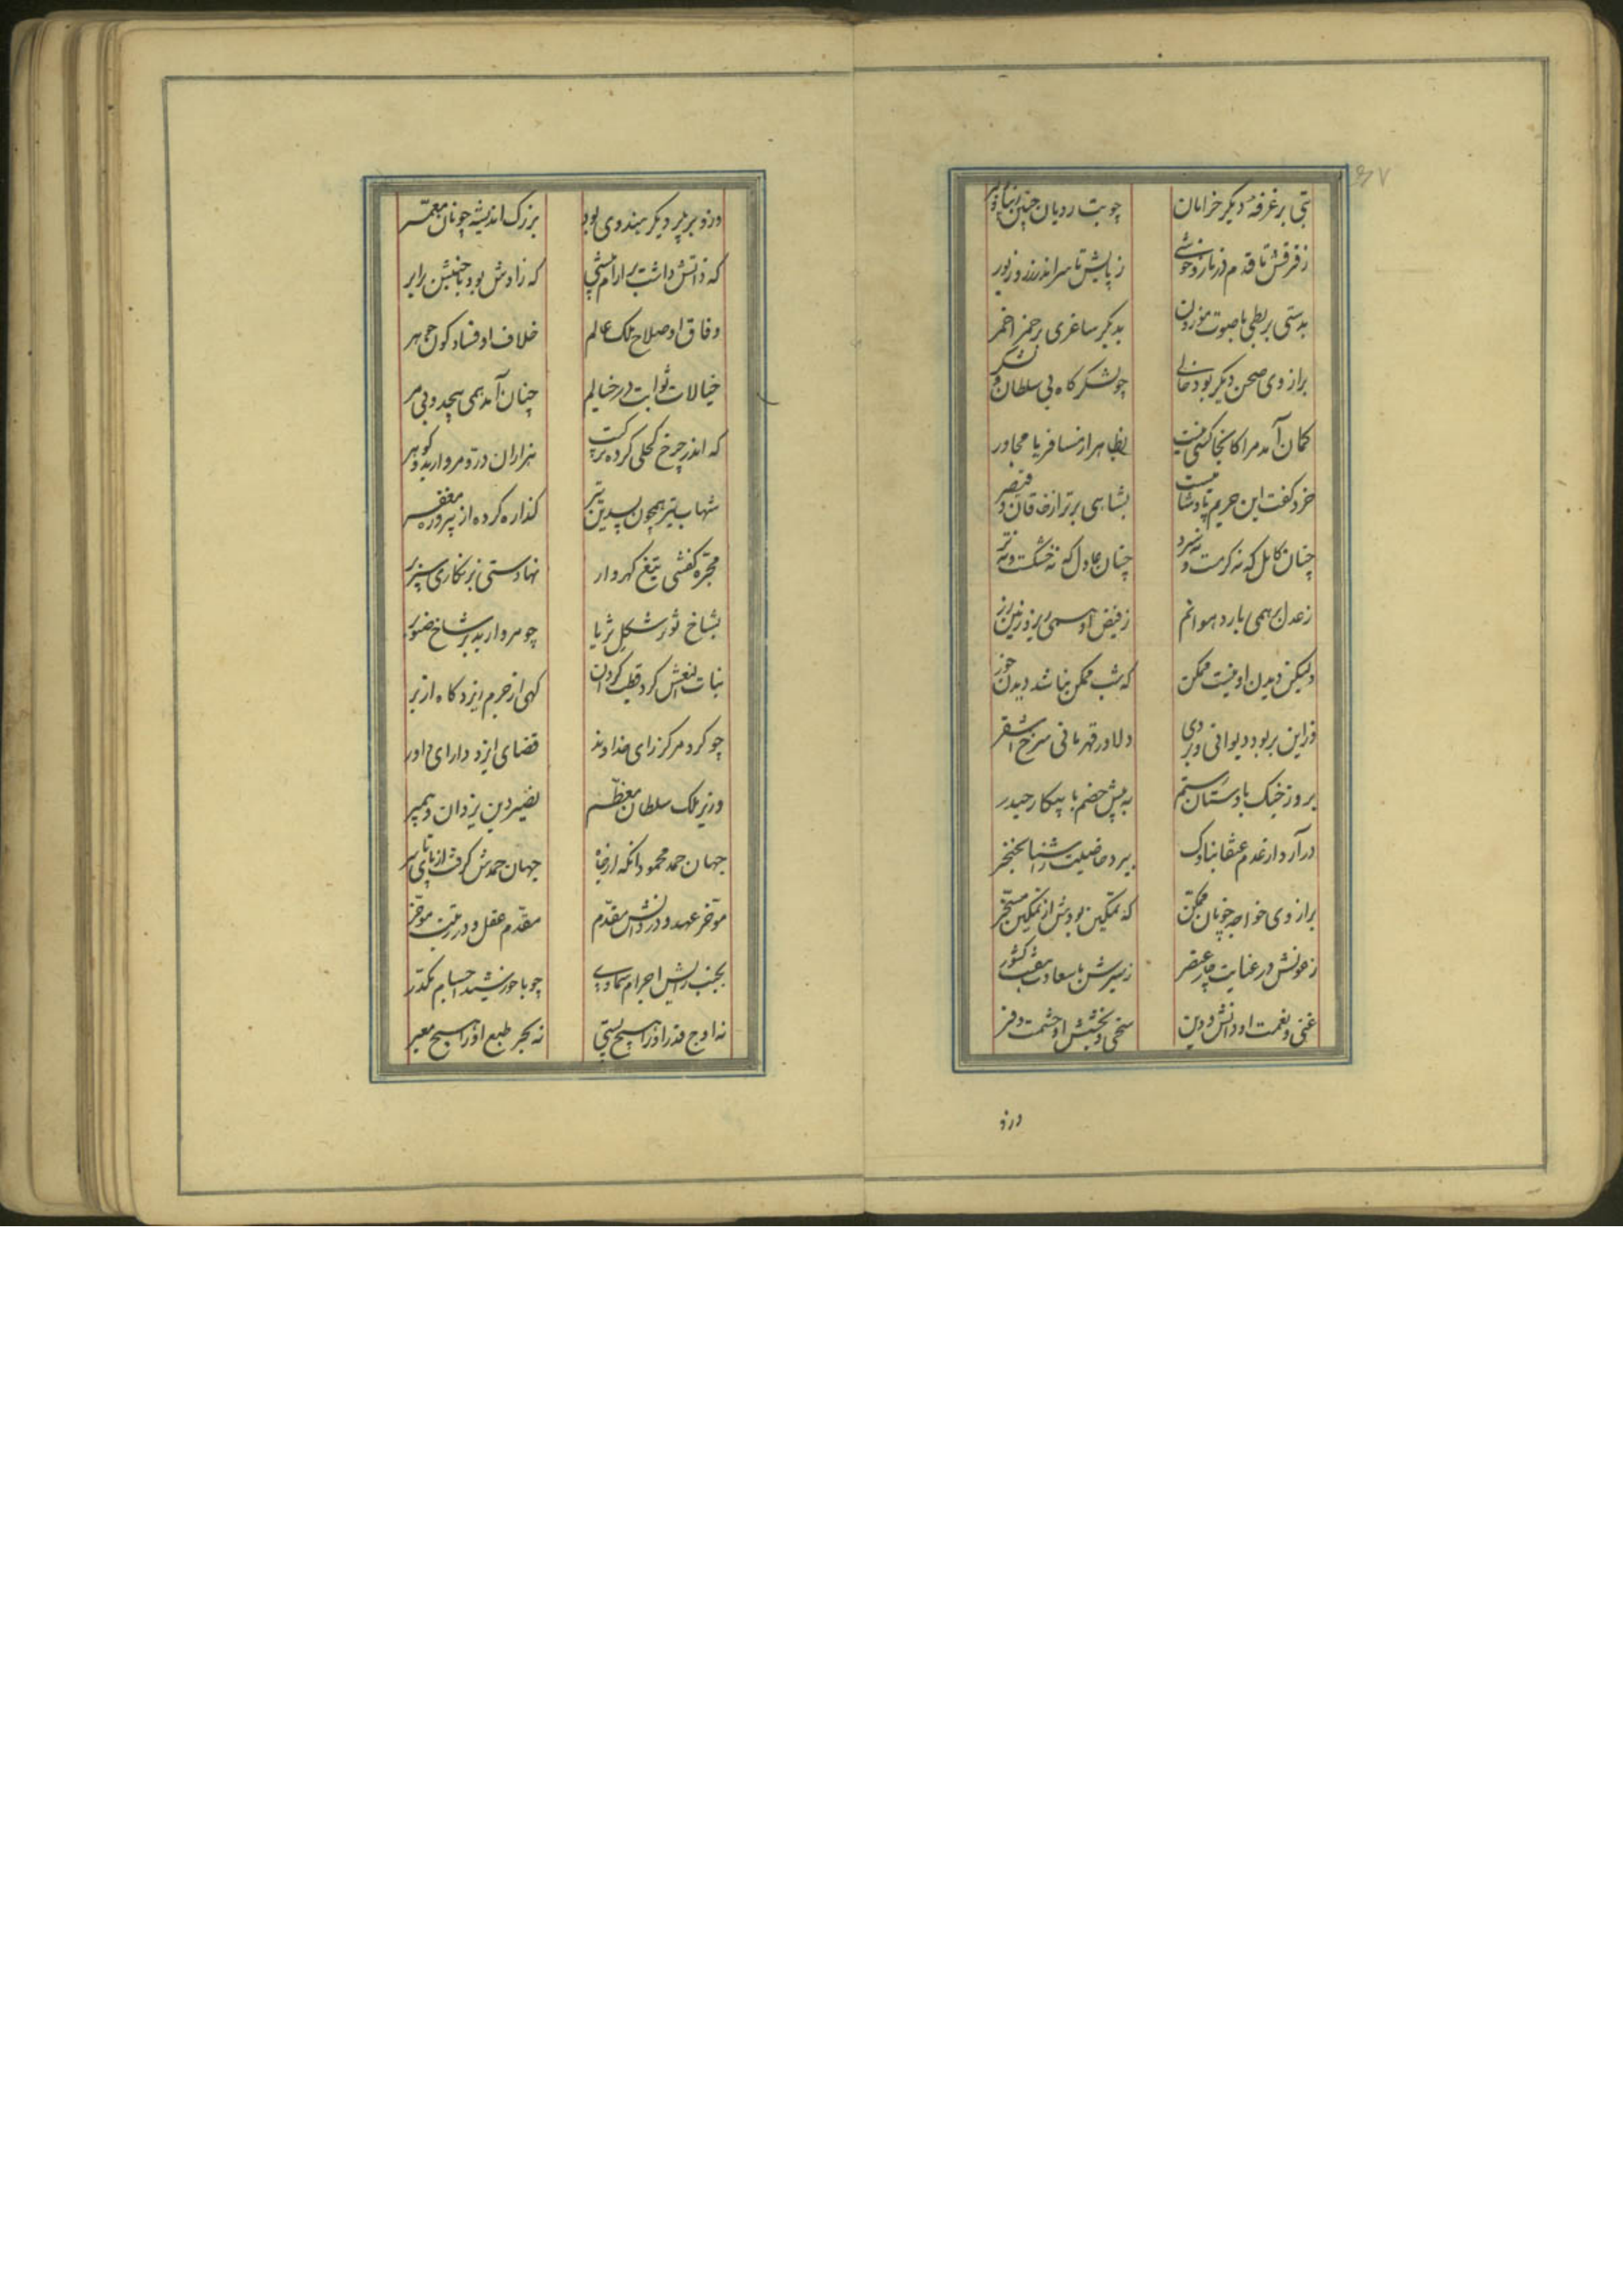 بتی بر غرفه دیگر خرامان چو بت رویان چین زیبا و
ز فرقش تا قدم در ناز و خوشی ز پایش تا سر اندر زر و زیور
بدستی بربطی با صوت موزون بدیگر ساغری پر خمر احمر
براز وی صحن دیگر بود خالی چو لشکر کاه بی سلطان و لشکر
کمان آمد مرا کانجا کسی نیست بظاهر از مسافر یا مجاور
خرد کفت این حریم پادشا بشاهی برتر از خاقان و قیصر
چنان کامل که نه کرمست و نه سرد چنان عادل که نه خشکست و نه تر
ز عدل همی بارد هوا نم ز فیض او همی ریزد زمین زر
ولیکن دیدن او نیست ممکن که شب ممکن نباشد دیدن خور
فراین بر بود دیوانی در وی دلاور قهرمانی سرخ اشقر
بروز جنک با دستان رستم به پیش خصم با پیکار حیدر
درآرد از عدم عنقا بناوک ببرد خاصیت را ز اشیا بخنجر
براز وی خواجه چونان ممکن که تمکین بودش از تمکین مسخر
ز عونش در عنایت چار عنصر ز سیرش با سعادت هفت کشور
غنی و نعمت او دانش و دین سخی و بخشش او حشمت و فر
درو
وزو برتر دیکر هندوی بود بزرک اندیشه چونان معمر
که ذاتش داشت بر آرام پیشی که زادش بود جنبش را برابر
وفاق او صلاح ملک عالم خلاف او فساد کون جوهر
خیالات ثوابت در خیالم چنان آمد همی بیحد و بی مر
که اندر چرخ کحلی کرده ترکیب هزاران در و مروارید و کوهر
شهاب تیز همچون تیر کذاره کرده از پیروزه مغفر
مجره کفتی تیغ کهردار نهادستی زنکاری سپر بر
بشاخ ثور شکل ثریا چو مروارید بر شاخ صنوبر
بنات النعش کرد قطب کردان کهی از جرم زیر و کاه از بر
چو کرد مرکز رای خداوند قضای ایزد دارای داور
وزیر ملک سلطان معظم نصیر دین یزدان و پیمبر
جهان حمد محمود آنکه از جاه جهان حمدش کرفت از پای تا سر
مؤخر عهد و در دانش مقدم مقدم عقل و در رتبت مؤخر
بجنب رایش اجرام سماوی چو با خورشید اجسام مکدر
نه اوج قدر او را هیچ پستی نه بحر طبع او را هیچ معبر